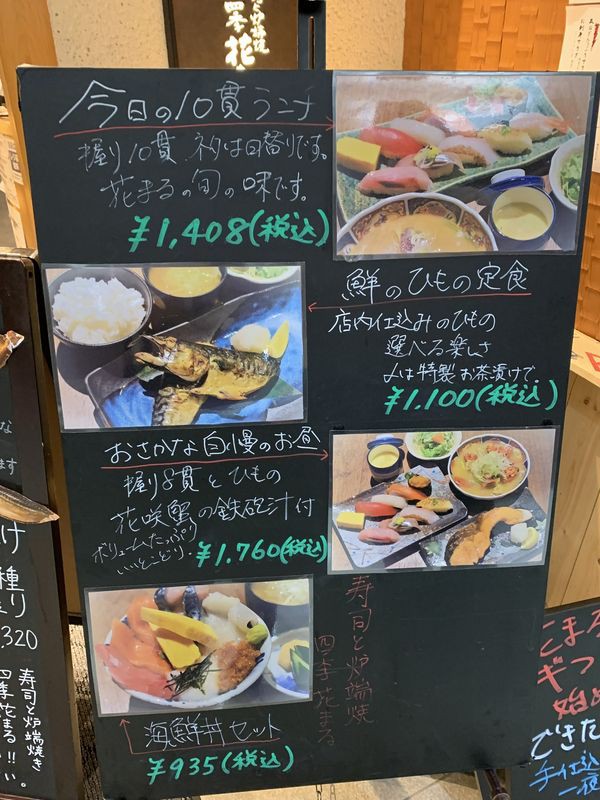 四季花
今日の10貫ランチ
握り10貫 ネタは日替りです。
花まるの旬の味です。
¥1,408(税込)
鮮のひもの定食
店内仕込みのひもの
選べる楽しさ
〆は特製お茶漬けで。
¥1,100(税込)
おさかな自慢のお昼
握り8貫とひもの
花咲蟹の鉄砲汁付
ボリュームたっぷり
いいとこどり。
¥1,760(税込)
寿司と炉端焼
四季花まる
海鮮丼セット
¥935(税込)
な
ます
け
種
り
,320
寿司と炉端焼き
四季花まる!!
こまろ
ギフ
始め
できた
手仕込
一夜